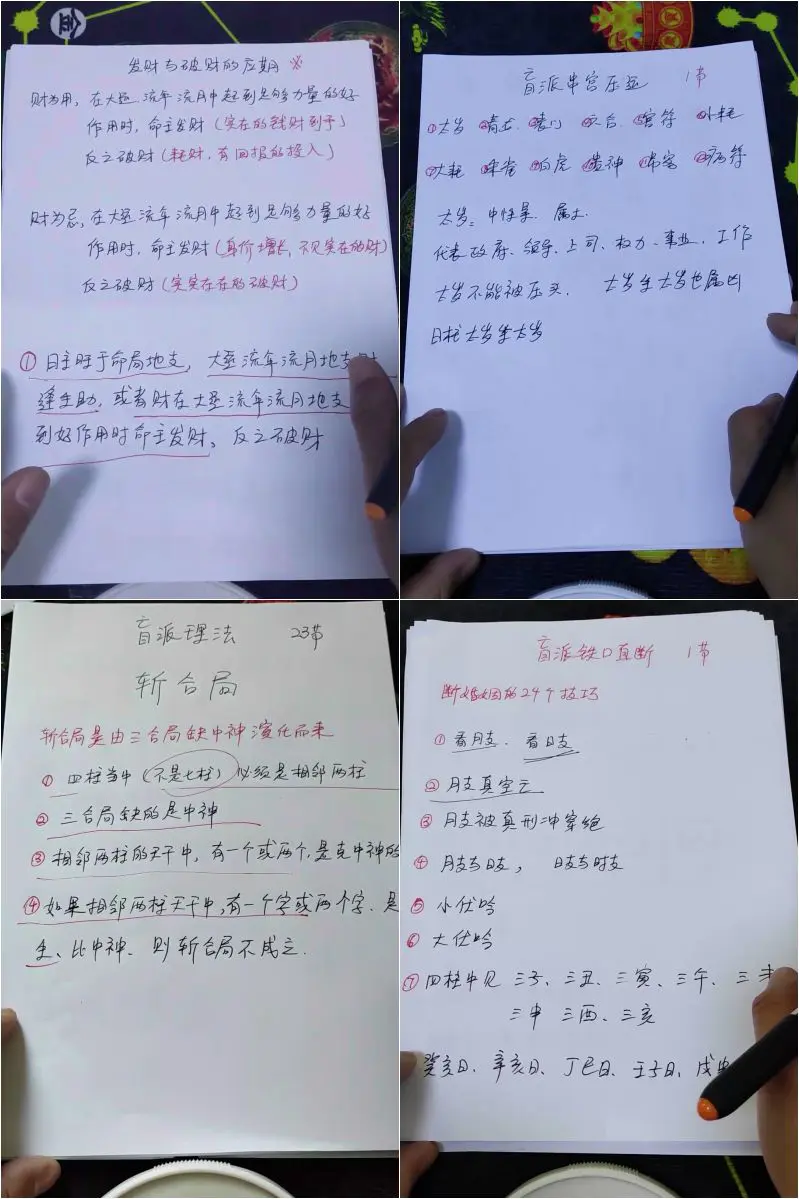 金
发财与破财的应期 ※
财为用，在大运 流年 流月中起到足够力量的好
作用时，命主发财（实在的钱财到手）
反之破财（耗财，有回报的投入）
财为忌，在大运 流年 流月中起到足够力量的好
作用时，命主发财（身价增长，不见实在的财）
反之破财（实实在在的破财）
① 日主旺于命局地支，大运 流年 流月地支
逢生助，或者财在大运 流年 流月地支
到好作用时命主发财。反之破财
盲派串宫压运 1节
①太岁 ②青龙 ③丧门 ④六合 ⑤官符 ⑥小耗
⑦大耗 ⑧朱雀 ⑨白虎 ⑩贵神 ⑪吊客 ⑫病符
太岁：中性星、属土.
代表政府、领导、上司、权力、事业、工作
太岁不能被压头. 太岁坐太岁也属凶
日柱太岁坐太岁
盲派理法 23节
斩合局
斩合局是由三合局缺中神演化而来
① 四柱当中（不是七柱）必须是相邻两柱
② 三合局缺的是中神
③ 相邻两柱的天干中，有一个或两个，是克中神的
④ 如果相邻两柱天干中，有一个字或两个字、是
生、比中神、则斩合局不成立.
盲派铁口直断 1节
断婚姻的24个技巧
① 看月支、看日支
② 月支真空亡
③ 月支被真刑冲穿绝
④ 月支与日支，日支与时支
⑤ 小伏吟
⑥ 大伏吟
⑦ 四柱中见 三子、三丑、三寅、三午、三
三申 三酉、三亥
癸亥日、辛亥日、丁巳日、壬子日、戊